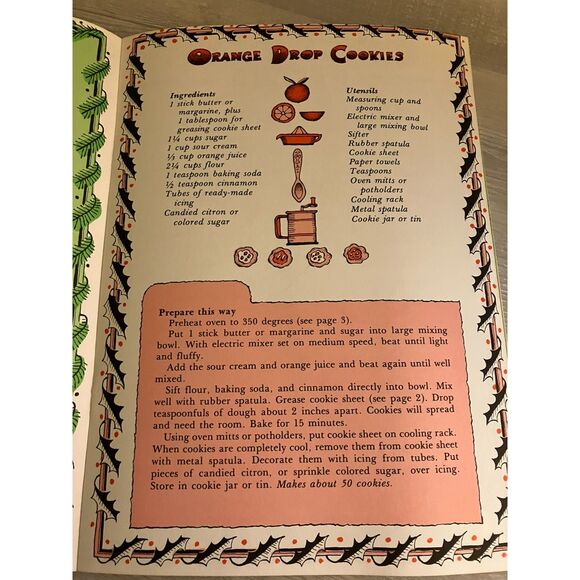 Orange Drop Cookies
Ingredients
1 stick butter or
margarine, plus
1 tablespoon for
greasing cookie sheet
1¼ cups sugar
1 cup sour cream
⅓ cup orange juice
2¼ cups flour
1 teaspoon baking soda
½ teaspoon cinnamon
Tubes of ready-made
icing
Candied citron or
colored sugar
Utensils
Measuring cup and
spoons
Electric mixer and
large mixing bowl
Sifter
Rubber spatula
Cookie sheet
Paper towels
Teaspoons
Oven mitts or
potholders
Cooling rack
Metal spatula
Cookie jar or tin
Prepare this way
Preheat oven to 350 degrees (see page 3).
Put 1 stick butter or margarine and sugar into large mixing
bowl. With electric mixer set on medium speed, beat until light
and fluffy.
Add the sour cream and orange juice and beat again until well
mixed.
Sift flour, baking soda, and cinnamon directly into bowl. Mix
well with rubber spatula. Grease cookie sheet (see page 2). Drop
teaspoonfuls of dough about 2 inches apart. Cookies will spread
and need the room. Bake for 15 minutes.
Using oven mitts or potholders, put cookie sheet on cooling rack.
When cookies are completely cool, remove them from cookie sheet
with metal spatula. Decorate them with icing from tubes. Put
pieces of candied citron, or sprinkle colored sugar, over icing.
Store in cookie jar or tin. Makes about 50 cookies.